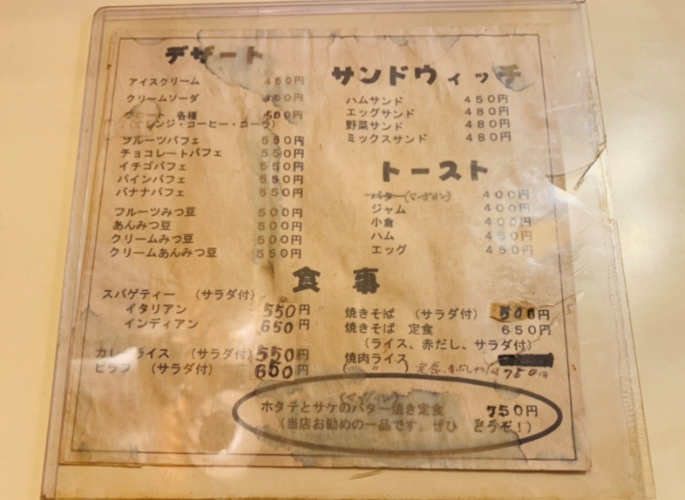 デザート
アイスクリーム 450円
クリームソーダ 450円
フロート 各種 500円
(オレンジ・コーヒー・コーラ)
フルーツパフェ 550円
チョコレートパフェ 550円
イチゴパフェ 550円
パインパフェ 550円
バナナパフェ 550円
フルーツみつ豆 500円
あんみつ豆 500円
クリームみつ豆 500円
クリームあんみつ豆 550円
サンドウィッチ
ハムサンド 450円
エッグサンド 480円
野菜サンド 480円
ミックスサンド 480円
トースト
バター(マーガリン) 400円
ジャム 400円
小倉 400円
ハム 450円
エッグ 450円
食事
スパゲティー (サラダ付)
イタリアン 550円
インディアン 650円
カレーライス (サラダ付) 550円
ピラフ (サラダ付) 650円
焼きそば (サラダ付) 500円
焼きそば 定食 650円
(ライス、赤だし、サラダ付)
焼肉ライス
( 〃 ) 定食、赤だしサラダ付 750円
ホタテとサケのバター焼き定食 750円
(当店お勧めの一品です。ぜひ どうぞ!)